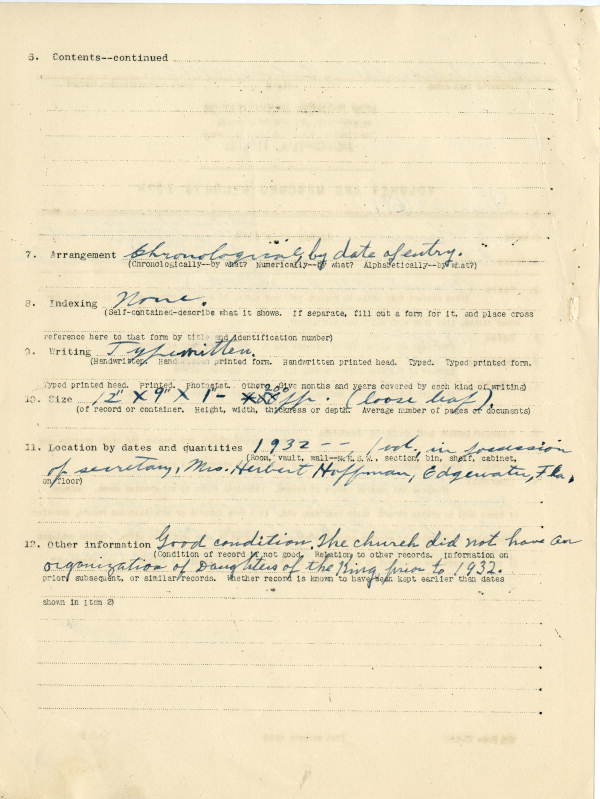 6. Contents--continued
7. Arrangement Chronological by date of entry.
(Chronologically--by what? Numerically--by what? Alphabetically--by what?)
8. Indexing None.
(Self-contained-describe what it shows. If separate, fill out a form for it, and place cross
reference here to that form by title and identification number)
9. Writing Typewritten.
(Handwritten. Handwritten printed form. Handwritten printed head. Typed. Typed printed form.
Typed printed head. Printed. Photostat. Other. Give months and years covered by each kind of writing)
10. Size 12" X 9" X 1"- 200 pp. (loose leaf).
(of record or container. Height, width, thickness or depth. Average number of pages or documents)
11. Location by dates and quantities 1932 -- , 1 vol. in possession
(Room, vault, wall--N.E.S.W., section, bin, shelf, cabinet,
of secretary, Mrs. Herbert Hoffman, Edgewater, Fla,
or floor)
12. Other information Good condition. The church did not have an
(Condition of record if not good. Relation to other records. Information on
organization of Daughters of the King prior to 1932.
prior, subsequent, or similar records. Whether record is known to have been kept earlier than dates
shown in item 2)